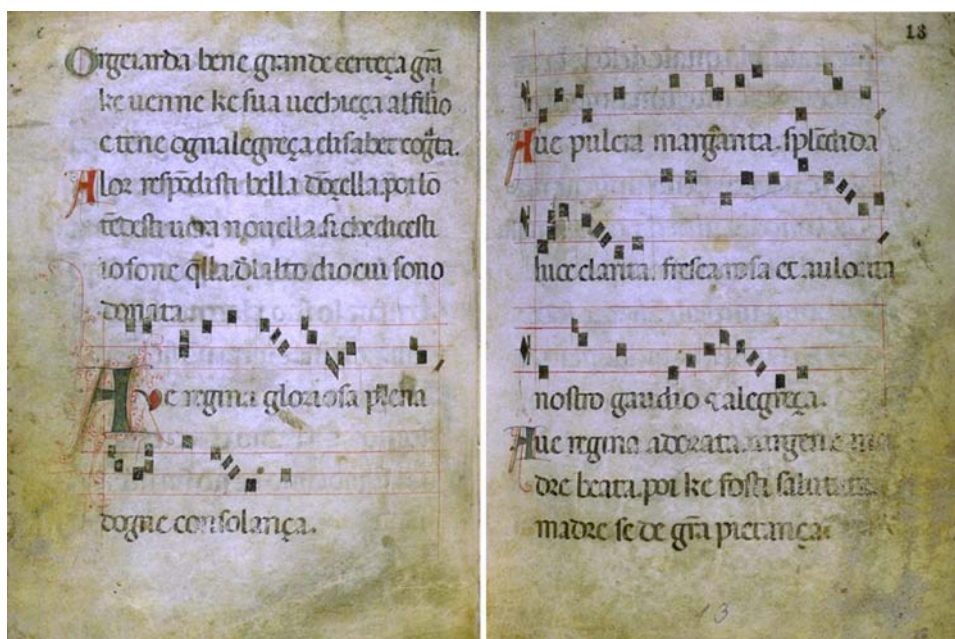 Orgeiarda bene grande certeça grā
ke uenne ke sua uechieça al filio
e tene ognalegreça elisabet cogta.
Alor respōdisti bella dōçella poi lo
uera nouella si che dicesti
io sone qlla dlalto dio cui sono
donata.
Aue regina gloriosa plena
dogne consolança.
18
Aue pulcra margarita. splēdida
luce clarita. fresca rosa et aulorita
nostro gaudio & alegreça.
Aue regina adorata. uirgene ma
dre beata. poi ke fosti salutata.
madre se de grā pietança.
13